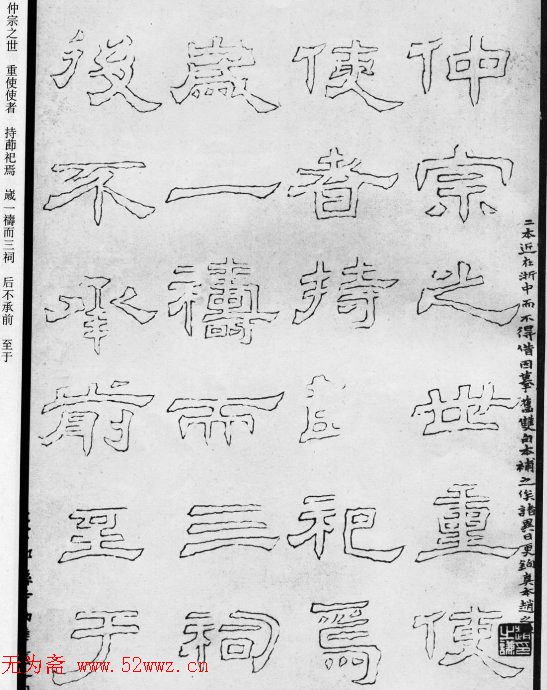 二本近在浙中而不得借因摹舊雙勾本補之俟諸異日更鉤真本趙之
仲宗之世重使
使者持祀焉
歲一禱而三祠
後不承前至于
仲宗之世 重使使者 持莭祀焉 歲一禱而三祠 后不承前 至于
无为斋 www.52wwz.cn